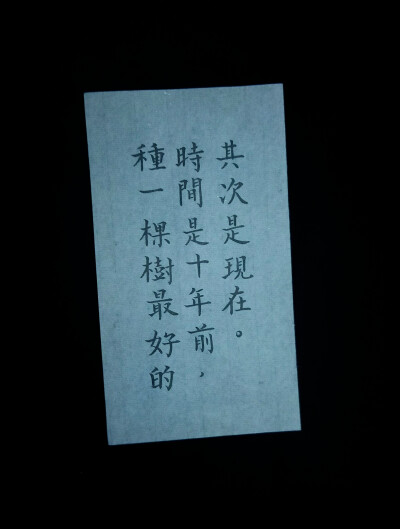 種一棵樹最好的
時間是十年前，
其次是現在。